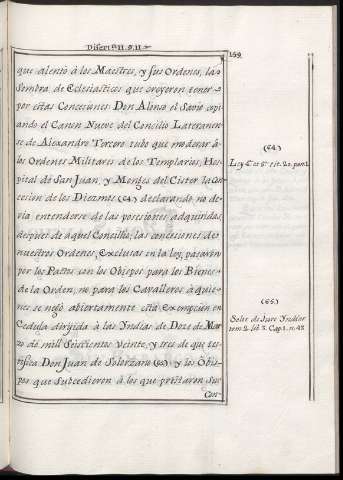 Disert.ⁿ II. §. II.
159
que alentò à los Maestres, y sus Ordenes, la
Sombra de Eclesiasticos que creyeron tener
por estas Concesiones Don Alonso el Savio copi-
ando el Canon Nueve del Concilio Lateranen-
se de Alexandro Tercero tubo que moderar à
los Ordenes Militares de los Templarios, Hos-
pital de San Juan, y Monges del Cister la Con-
cesion de los Diezmos (64.) declarando no de-
via entenderse de las posesiones adquiridas
despues de aquel Concilio; las concesiones de
nuestros Ordenes, Exclusas en la ley, pasaron
por los Pactos con los Obispos para los Bienes
de la Orden, no para los Cavalleros à quie-
nes se negò abiertamente esta Exempcion en
Cedula dirigida à las Yndias de Doze de Mar-
zo de mill Seiscientos Veinte, y tres de que tes-
tifica Don Juan de Solorzano (65.) y los Obis-
pos que Subcedieron à los que prestaron Su
Con-
(64.)
Ley 4.ª et 5.ª tit. 20. part. 1.
(65.)
Solor. de Jure Yndiar.
tom. 2. lib. 3. Cap. 1. n. 48.